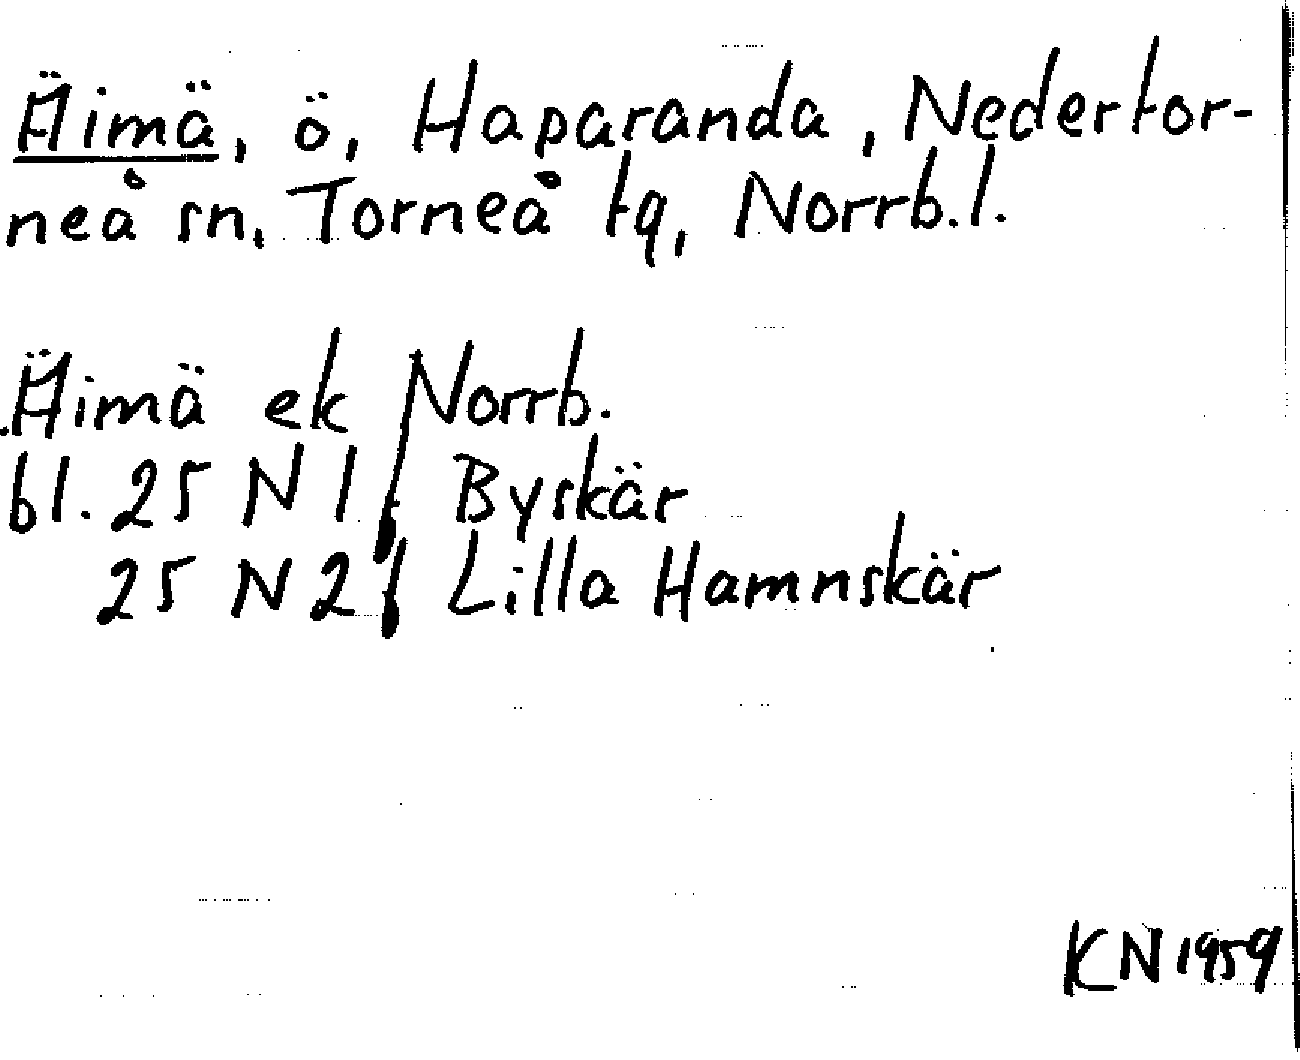 Äimä, ö, Haparanda, Nedertor-
neå sn, Torneå tg, Norrb.l.
Äimä ek Norrb.
bl. 25 N 1, Byskär
25 N 2, Lilla Hamnskär
KN 1959